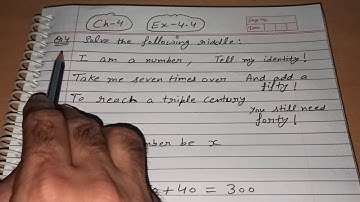 Ch-4 Ex-4.4
Q4 Solve the following riddle:
I am a number, Tell my identity!
Take me seven times over And add a fifty!
To reach a triple century
you still need forty!
be x
+40 = 300